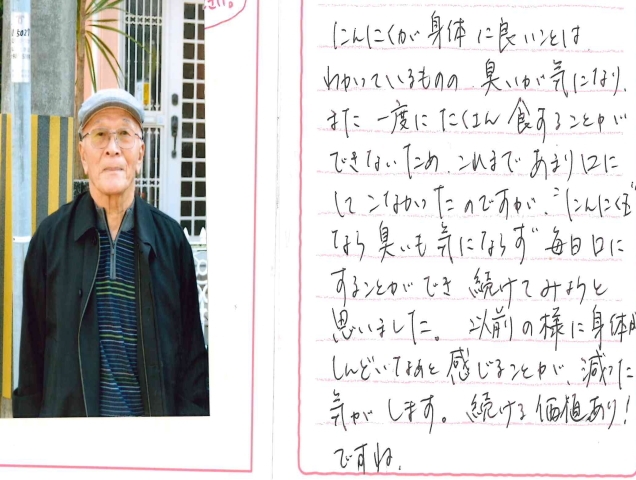 にんにくが身体に良いことは
わかっているものの、臭いが気になり、
また一度にたくさん食することが
できないため、これまであまり口に
してこなかったのですが、"にんにく玉"
なら臭いも気にならず毎日口に
することができ続けてみようと
思いました。以前の様に身体が
しんどいなあと感じることが、減った
気がします。続ける価値あり！
ですね。